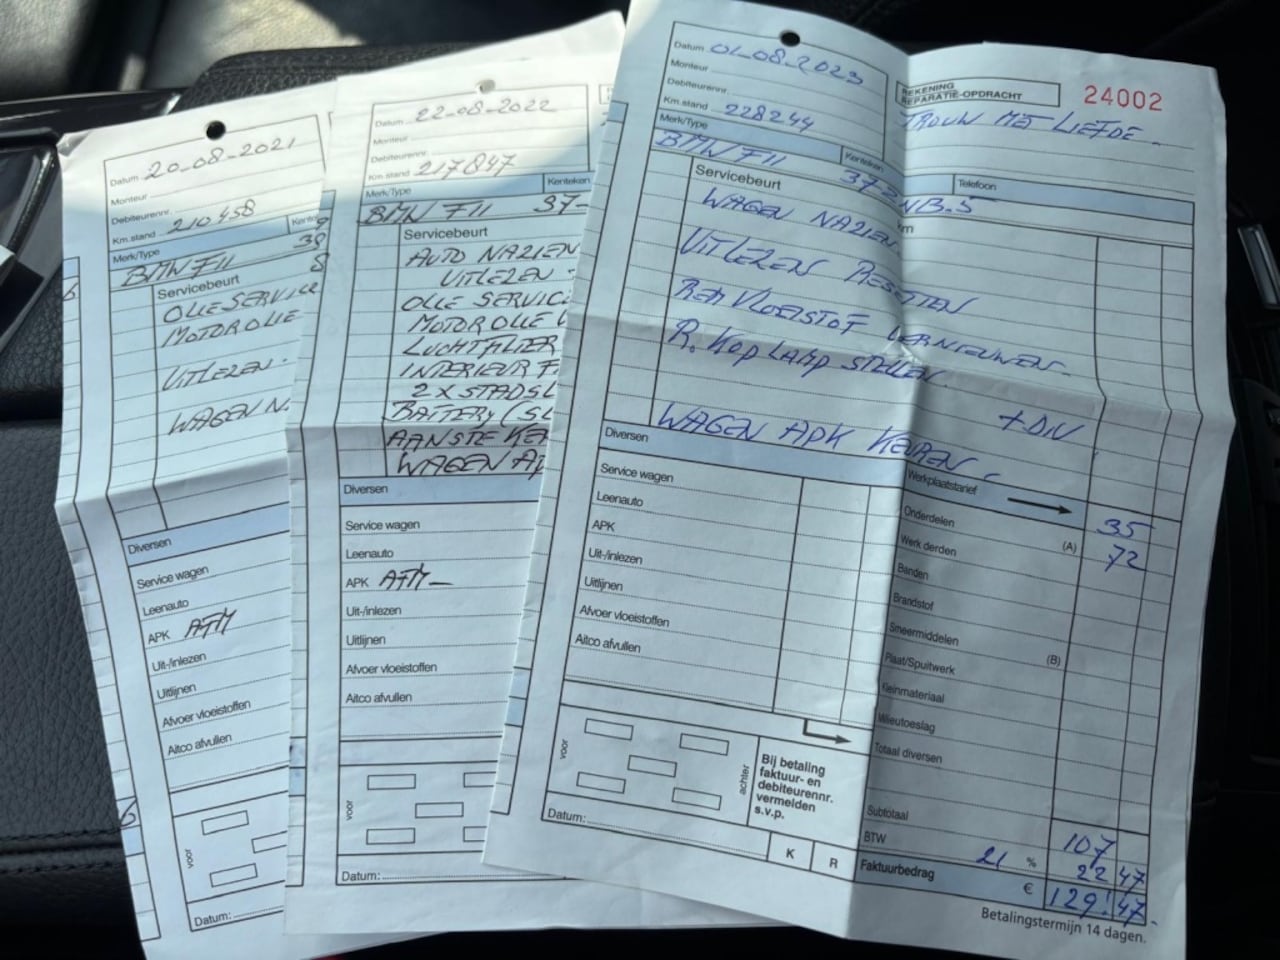 Datum 20-08-2021
Monteur
Debiteurennr.
Km.stand 210458
Merk/Type
BMW F11
Servicebeurt
OLIE SERVICE
MOTOROLIE
UITLEZEN
WAGEN N.
Diversen
Service wagen
Leenauto
APK ATM
Uit-/inlezen
Uitlijnen
Afvoer vloeistoffen
Aitco afvullen
voor
Datum:
Datum 22-08-2022
Monteur
Debiteurennr.
Km.stand 217847
Merk/Type Kenteken
BMW F11 37-
Servicebeurt
AUTO NAZIEN
UITLEZEN
OLIE SERVICE
MOTOROLIE
LUCHTFILTER
INTERIEUR
2 X STADSL
BATTERY (SL
AANSTEKER
WAGEN AP
Diversen
Service wagen
Leenauto
APK ATM
Uit-/inlezen
Uitlijnen
Afvoer vloeistoffen
Aitco afvullen
voor
Datum:
Datum 01-08-2023
Monteur
Debiteurennr.
Km.stand 228244
REKENING
REPARATIE-OPDRACHT
24002
TROUW MET LIEFDE
Merk/Type Kenteken Telefoon
BMW F11
Servicebeurt
WAGEN NAZIEN
UITLEZEN RESETTEN
REMVLOEISTOF VERNIEUWEN
R. KOPLAMP STELLEN
WAGEN APK KEUREN
Diversen
Service wagen
Leenauto
APK
Uit-/inlezen
Uitlijnen
Afvoer vloeistoffen
Aitco afvullen
Werkplaatstarief
Onderdelen (A) 35
Werk derden 72
Banden
Brandstof
Smeermiddelen (B)
Plaat/Spuitwerk
Kleinmateriaal
Totaal diversen
voor
achter
Bij betaling
faktuur- en
debiteurennr.
vermelden
s.v.p.
Datum:
K R
Subtotaal 107
BTW 21 % 22 47
Faktuurbedrag € 129 47
Betalingstermijn 14 dagen.